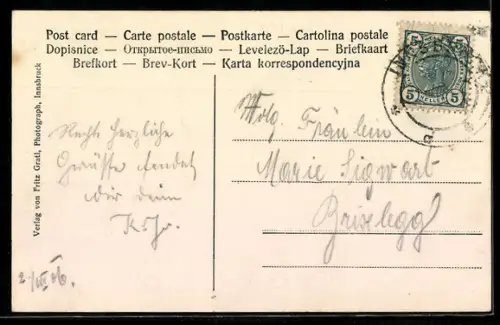 Post card — Carte postale — Postkarte — Cartolina postale
Dopisnice — Открытое-письмо — Levelező-Lap — Briefkaart
Brefkort — Brev-Kort — Karta korrespondencyjna
Verlag von Fritz Gratl, Photograph, Innsbruck.
5 5
HELLER
Recht herzliche
Grüße sendet
dir dein
Fräulein
Marie Sigwart
Brixlegg